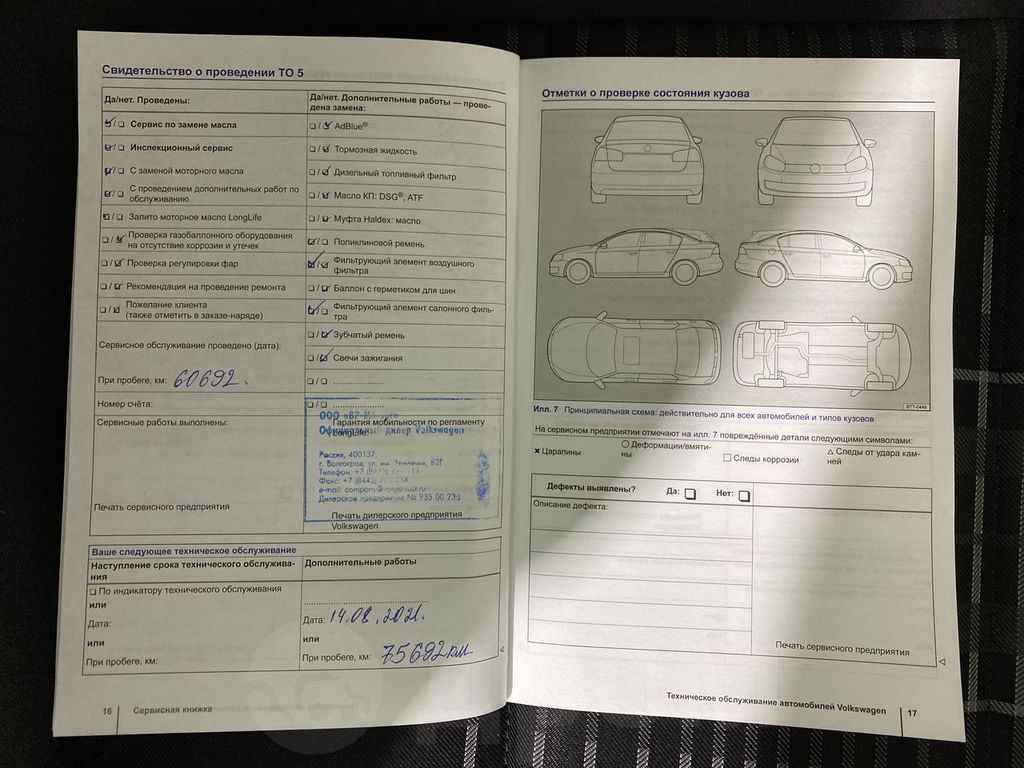 Свидетельство о проведении ТО 5
Да/нет. Проведены:
Сервис по замене масла
Инспекционный сервис
С заменой моторного масла
С проведением дополнительных работ по
обслуживанию
Залито моторное масло LongLife
Проверка газобаллонного оборудования
на отсутствие коррозии и утечек
Проверка регулировки фар
Рекомендация на проведение ремонта
Пожелание клиента
(также отметить в заказе-наряде)
Сервисное обслуживание проведено (дата):
При пробеге, км: 60692.
Номер счёта:
Сервисные работы выполнены:
Печать сервисного предприятия
Да/нет. Дополнительные работы — прове-
дена замена:
AdBlue®
Тормозная жидкость
Дизельный топливный фильтр
Масло КП: DSG®, ATF
Муфта Haldex: масло
Поликлиновой ремень
Фильтрующий элемент воздушного
фильтра
Баллон с герметиком для шин
Фильтрующий элемент салонного филь-
тра
Зубчатый ремень
Свечи зажигания
Гарантия мобильности по регламенту
LongLife
ООО
Официальный дилер Volkswagen
Россия, 400137,
г. Волгоград,
Телефон: +7
Факс: +7
e-mail:
Дилерское предприятие № 935 00 233
Печать дилерского предприятия
Volkswagen
Ваше следующее техническое обслуживание
Наступление срока технического обслужива-
ния
По индикатору технического обслуживания
или
Дата:
или
При пробеге, км:
Дополнительные работы
Дата: 14.08.2021.
или
При пробеге, км: 75692 км
16 Сервисная книжка
Отметки о проверке состояния кузова
Илл. 7 Принципиальная схема: действительно для всех автомобилей и типов кузовов
На сервисном предприятии отмечают на илл. 7 повреждённые детали следующими символами:
Царапины
Деформации/вмяти-
ны
Следы коррозии
Следы от удара кам-
ней
Дефекты выявлены? Да: Нет:
Описание дефекта:
Печать сервисного предприятия
Техническое обслуживание автомобилей Volkswagen 17